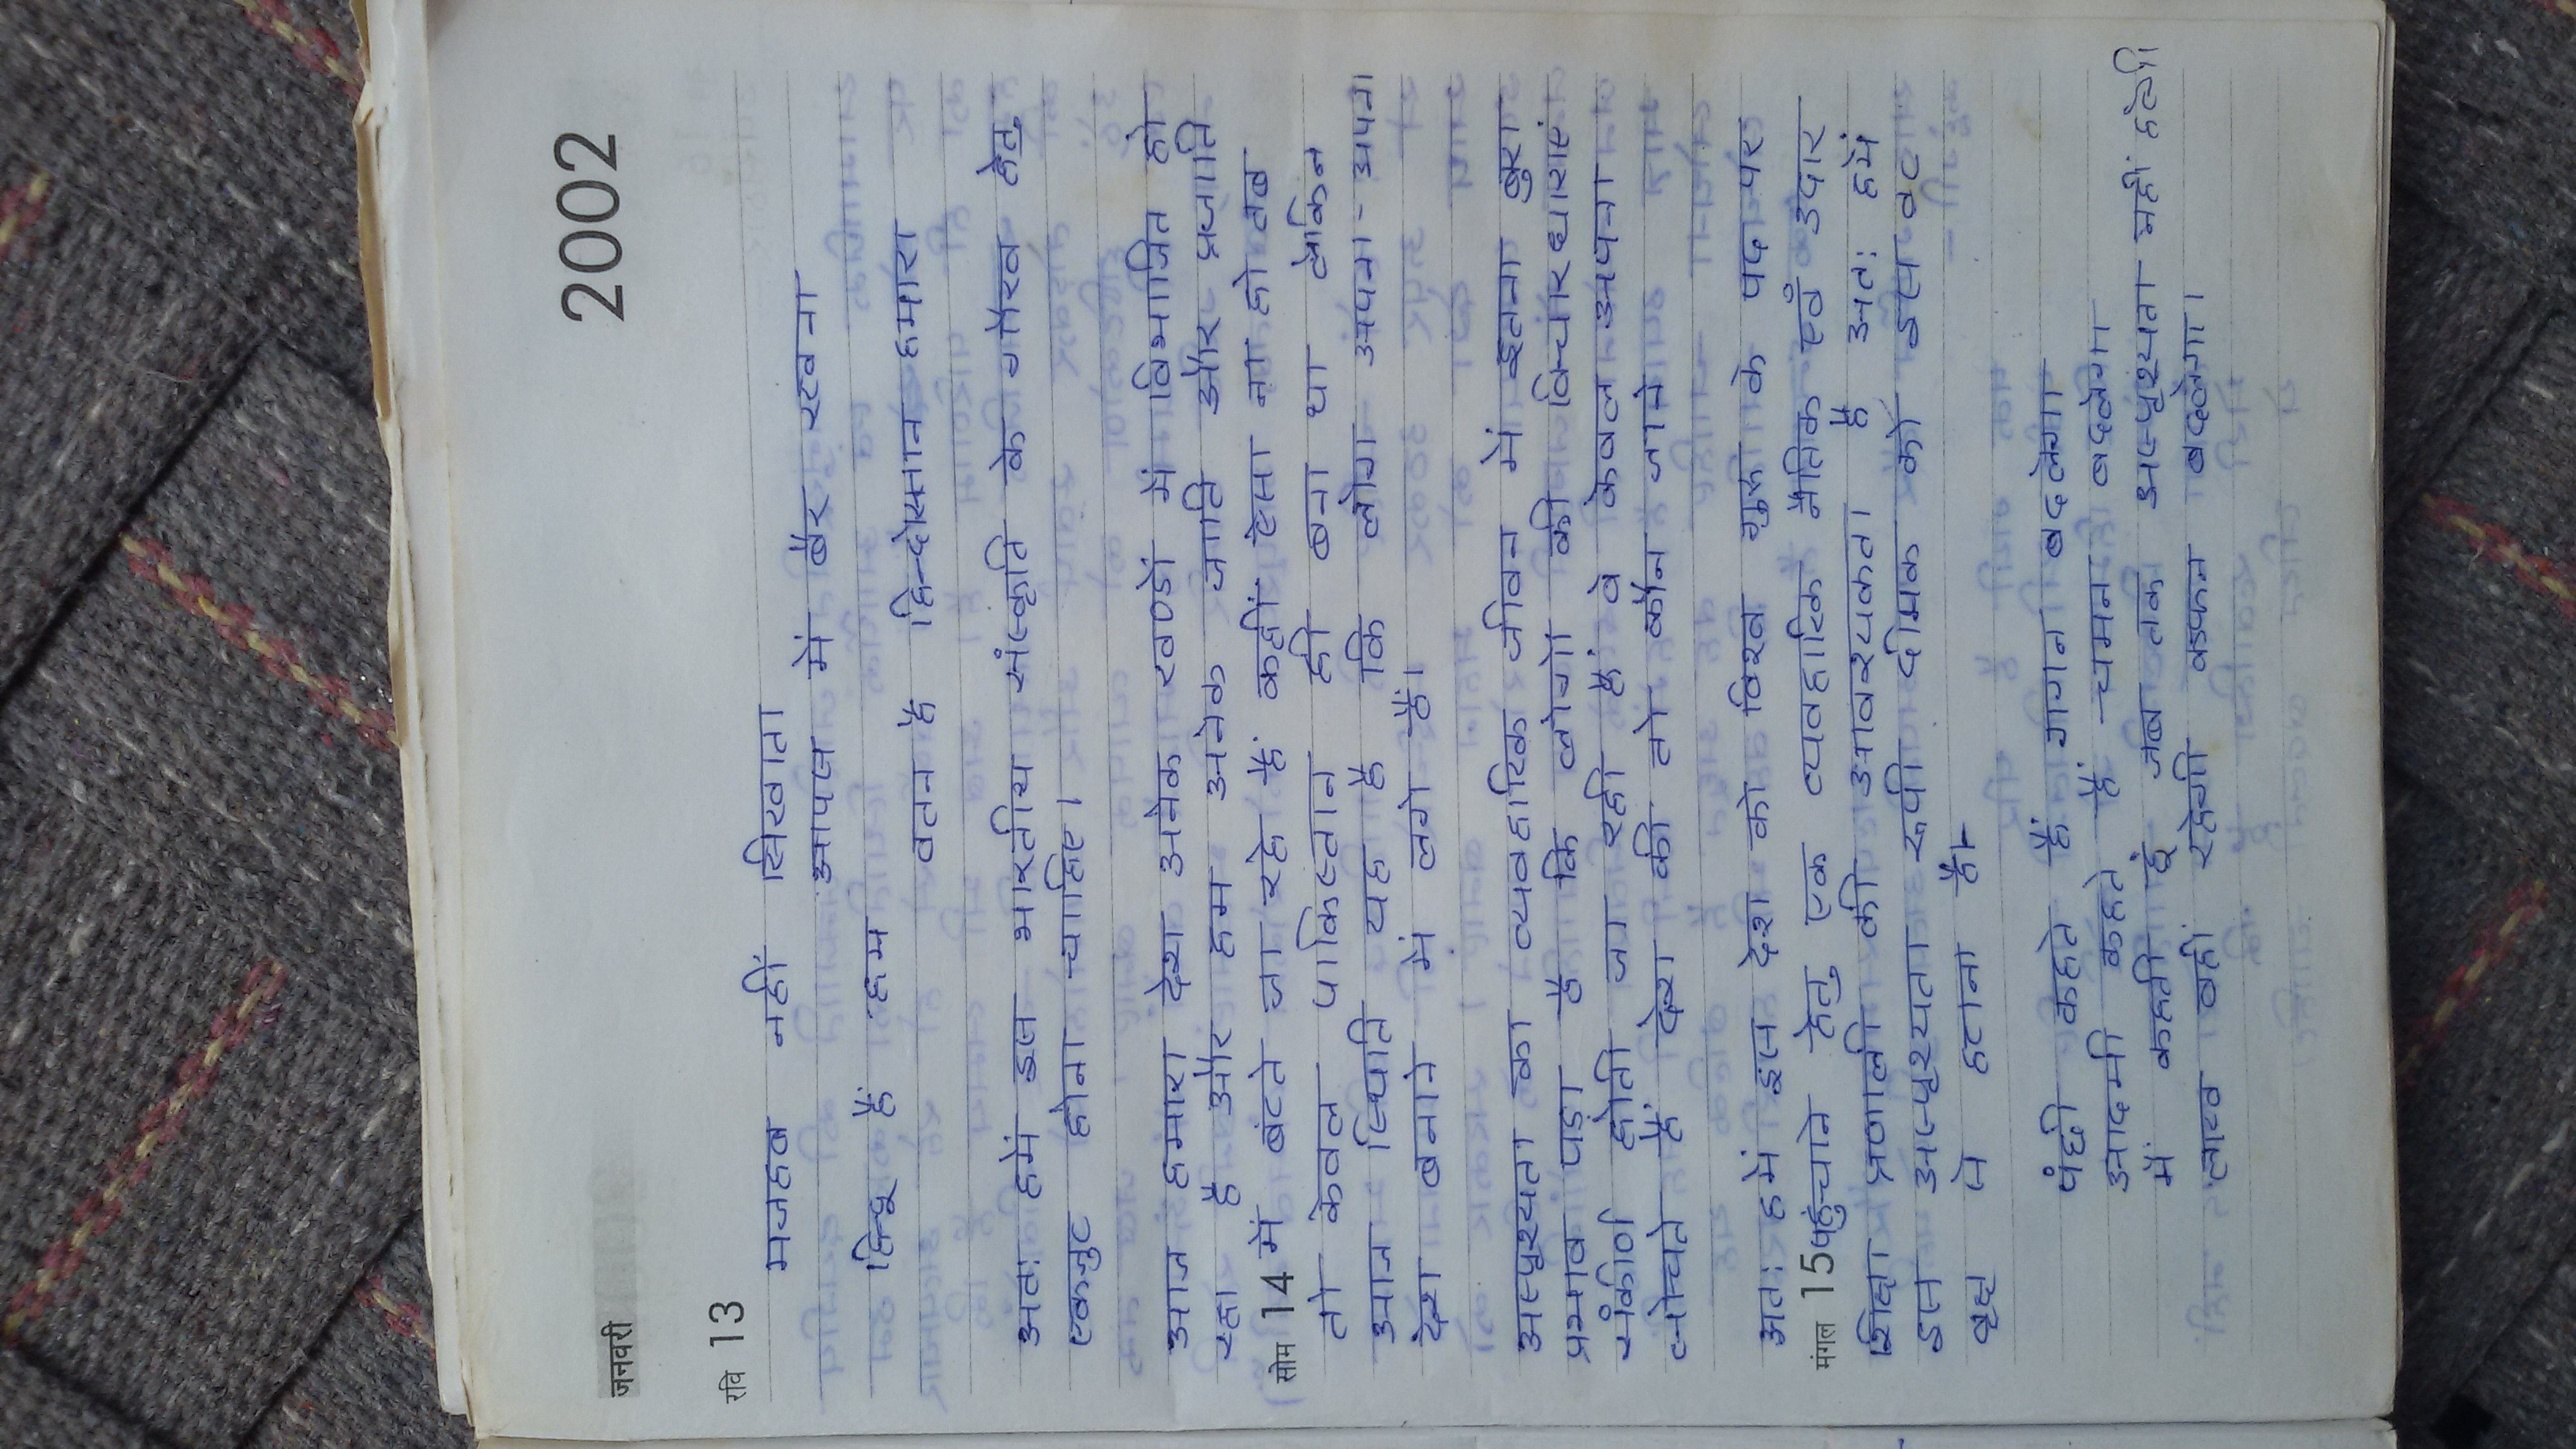 जनवरी 2002
रवि 13
मजहब नहीं सिखाता
आपस में बैर रखना
हिन्दू हैं हम
वतन है हिन्दोस्तान हमारा
अतः हमें इस भारतीय संस्कृति के गौरव हेतु
एकजुट होना चाहिए।
आज हमारा देश अनेक खण्डों में विभाजित हो
रहा है और हम अनेक जाति और प्रजाति
सोम 14 में बंटते जा रहे हैं कहीं ऐसा ना हो तब
तो केवल पाकिस्तान ही बना था लेकिन
आज स्थिति यह है कि लोग अपना-अपना
देश बनाने में लगे हैं।
अस्पृश्यता का व्यवहारिक जीवन में इतना बुरा
प्रभाव पड़ा है कि लोगों की विचार धाराएं
संकीर्ण होती जा रही हैं वे केवल अपना
सोचते हैं देश की तो कौन जाने
अतः हमें इस देश को विश्व गुरू के पद पर
मंगल 15 पहुंचाने हेतु एक व्यवहारिक नैतिक एवं उदार
शिक्षा प्रणाली की आवश्यकता है अतः हमें
इस अस्पृश्यता रूपी दीमक को इस वट
वृक्ष से हटाना है।
पंछी कहते हैं गगन बदलेगा
आदमी कहते हैं चमन बदलेगा
मैं कहती हूं जब तक अस्पृश्यता नहीं हटेगी
लाश वही रहेगी कफन बदलेगा।